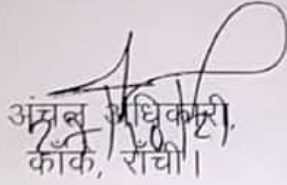 अंचल अधिकारी,
काँके, राँची।